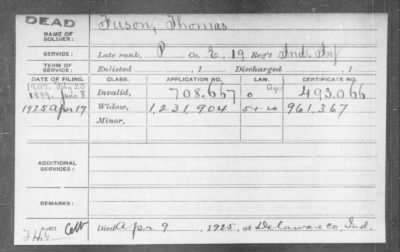 DEAD
NAME OF SOLDIER: Fuson, Thomas
SERVICE: Late rank, P Co. E, 19 Reg't Ind. Inf
TERM OF SERVICE: Enlisted , 1 Discharged , 1
DATE OF FILING. CLASS. APPLICATION NO. LAW. CERTIFICATE NO.
1907. July 25 Age
1889. June 8 Invalid, 708.667 0 493.066
1925 Apr 17 Widow, 1,231,904 5-1-20 961,367
Minor,
ADDITIONAL SERVICES:
REMARKS:
Died Apr 9, 1925, at Delaware Co, Ind.